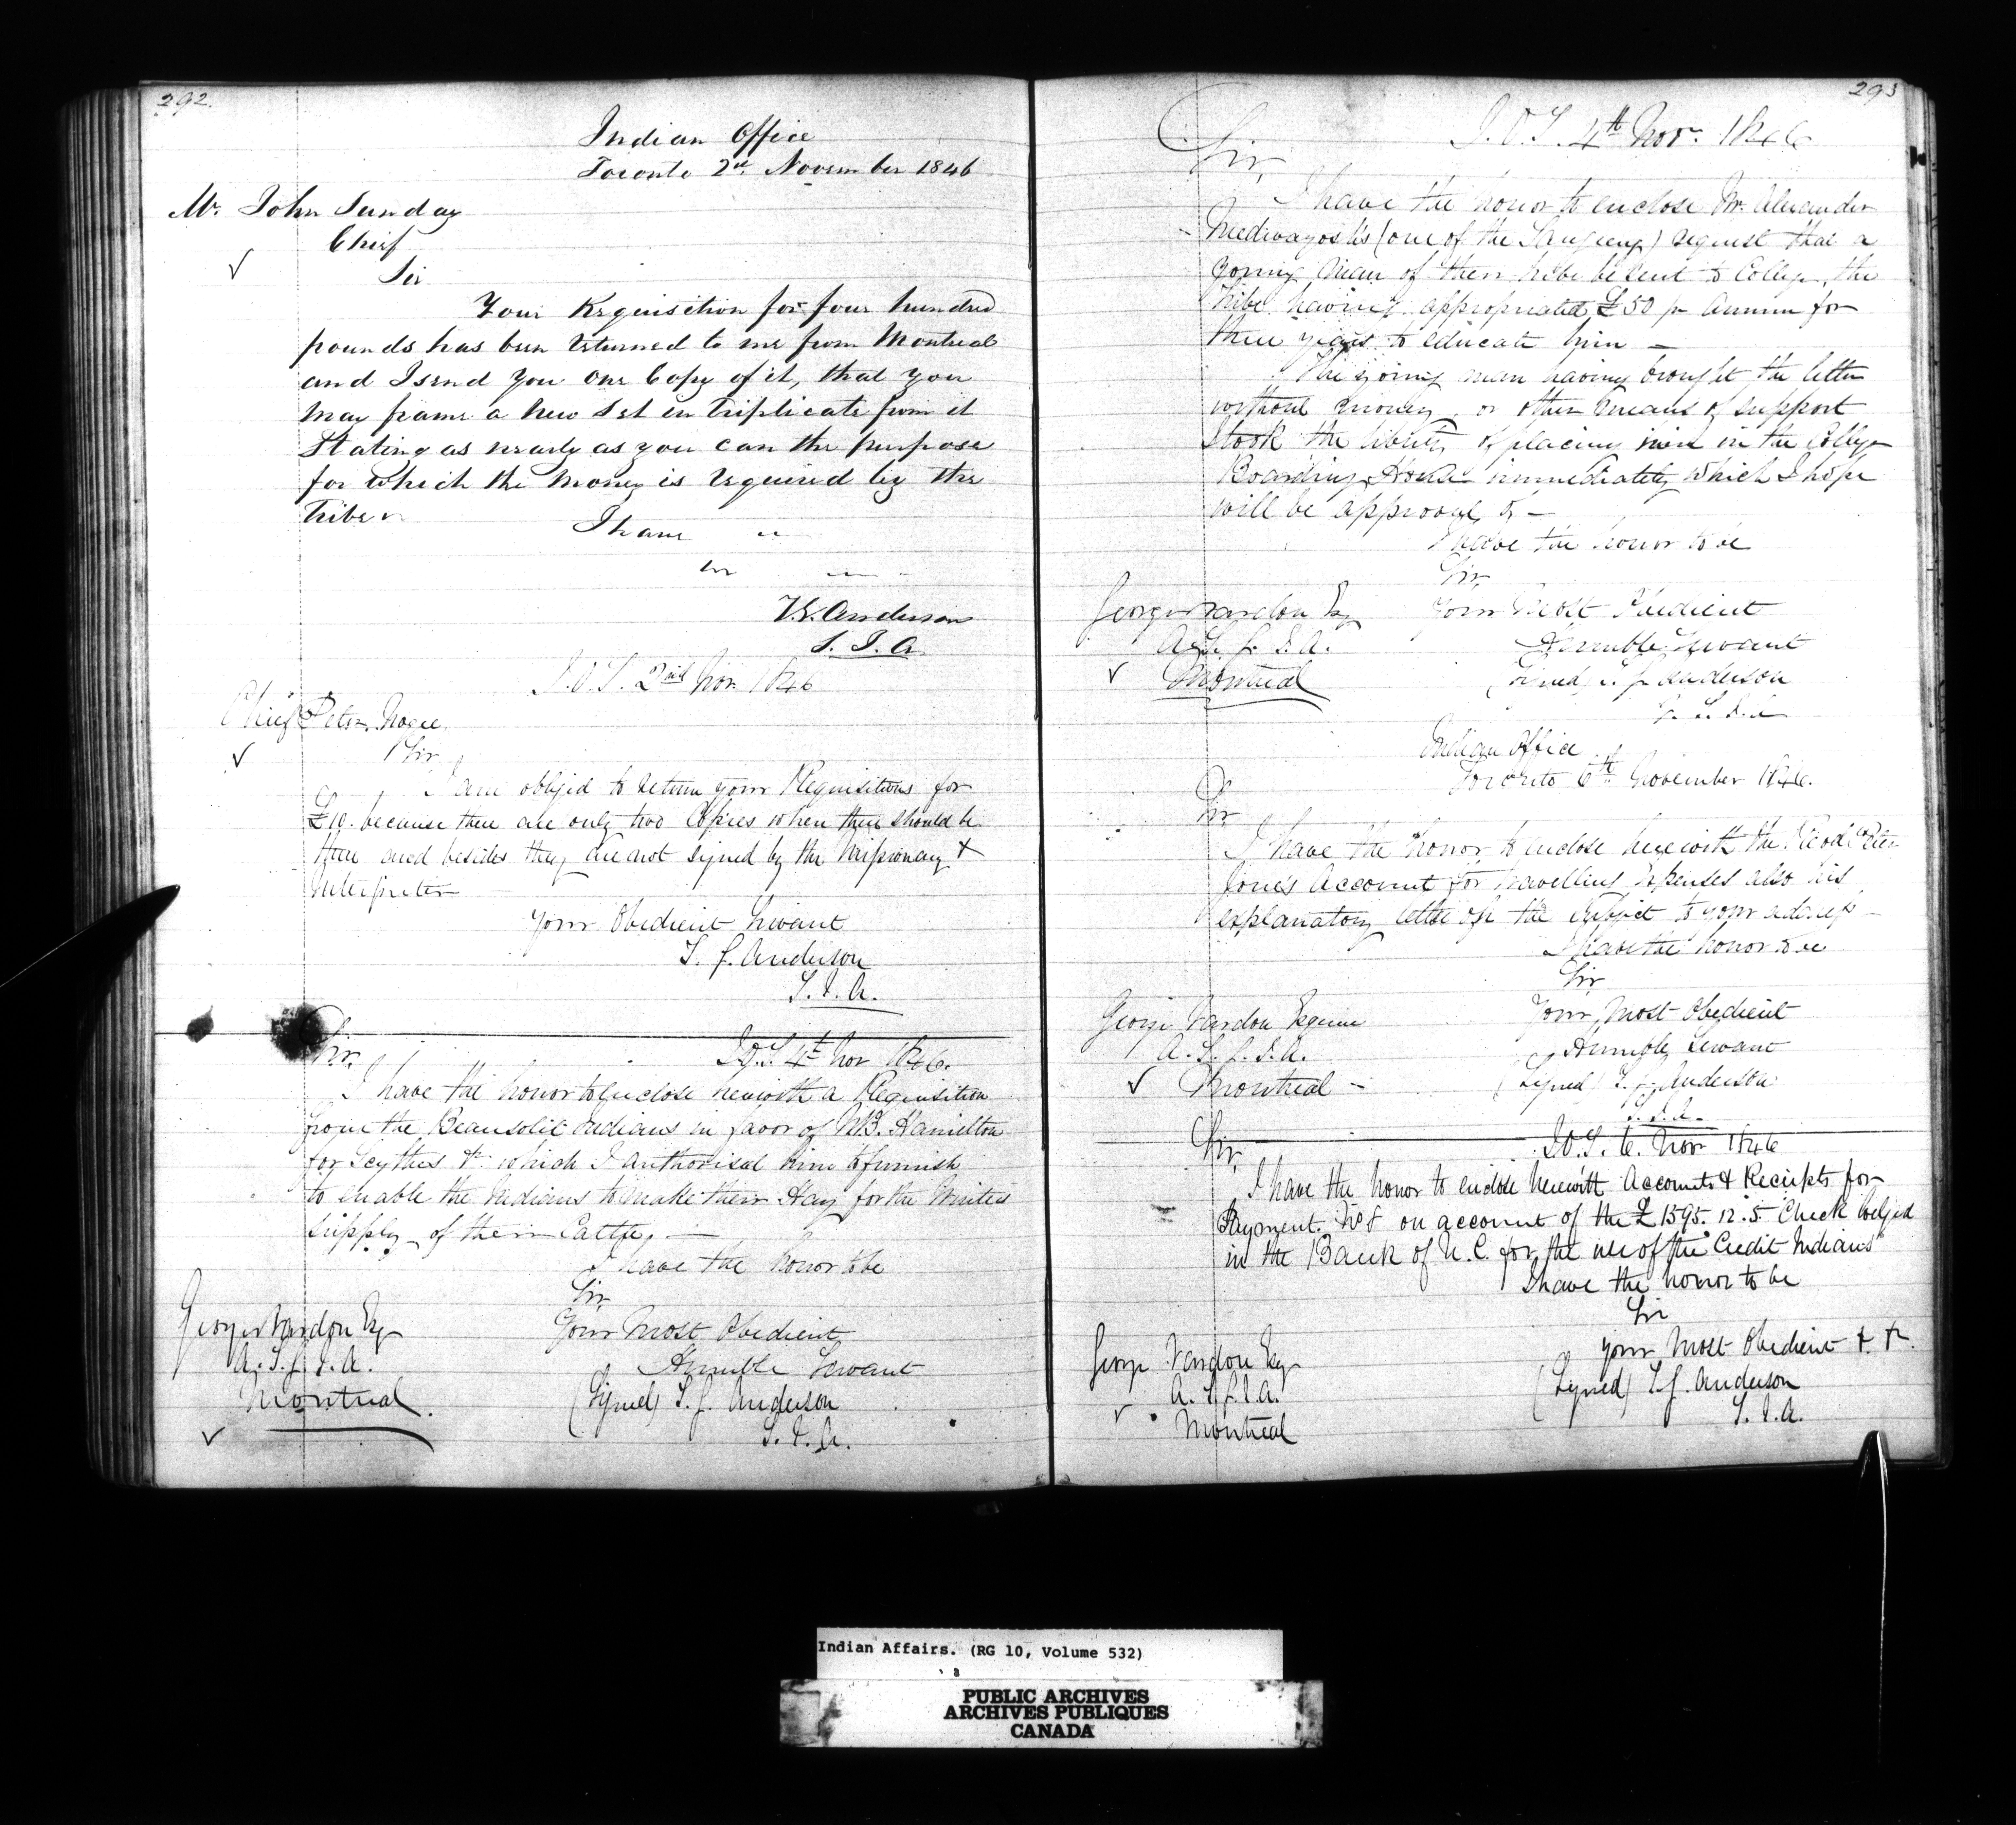 292.
Indian Office
Toronto 2nd November 1846
Mr. John Sunday
Chief
Sir
Your Requisition for four hundred
pounds has been returned to me from Montreal
and I send you one Copy of it, that you
may frame a new Set in Triplicate from it
Stating as nearly as you can the purpose
for which the money is required by the
Tribe
I have
T.G. Anderson
S. I. A.
I.O.T. 2nd Nov. 1846
Chief Peter Nogee
Sir
I am obliged to return your Requisitions for
£10. because there are only two Copies when there should be
three and besides they are not signed by the Missionary &
Interpreter
Your Obedient Servant
T. G. Anderson
S. I. A.
Sir,
I.O.T. 4th Nov 1846.
I have the honor to enclose herewith a Requisition
from the Beausolie Indians in favor of W.B. Hamilton
for Scythes &c which I authorised him to furnish
to enable the Indians to make their Hay for the Winters
supply of their Cattle, —
I have the honor to be
Sir
George Vardon Esq
Your Most Obedient
A. S. G. I. A.
Humble Servant
Montreal.
(Signed) T. G. Anderson
S. I. A.
293
I.O.T. 4th Nov. 1846
Sir,
I have the honor to enclose Mr. Alexander
(one of the Saugeeng) request that a
young man of their tribe be sent to College, the
Tribe having appropriated £50 pr Annum for
three years to educate him —
The young man having brought the letter
without money, or other means of support
I took the liberty of placing him in the College
Boarding House immediately, which I hope
will be approved of —
I have the honor to be
Sir
George Vardon Esq
Your Most Obedient
A. S. G. I. A.
Humble Servant
Montreal
(Signed) T. G. Anderson
S. I. A
Indian Office
Toronto 6th November 1846.
Sir
I have the honor to enclose herewith the Revd Peter
Jones Account for travelling expenses also his
explanatory letter on the subject to your address —
I have the honor to be
Sir
George Vardon Esquire
Your Most Obedient
A. S. G. I. A.
Humble Servant
Montreal —
(Signed) T. G. Anderson
S. I. A.
Sir,
I.O.T. 6. Nov 1846
I have the honor to enclose herewith Accounts & Receipts for
Payment. No 8 on account of the £1595. 12. 5. Check lodged
in the Bank of U. C. for the use of the "Credit Indians"
I have the honor to be
Sir
George Vardon Esq
Your Most Obedient &. &c.
A. S. G. I. A.
(Signed) T. G. Anderson
Montreal
S. I. A.
Indian Affairs. (RG 10, Volume 532)
PUBLIC ARCHIVES
ARCHIVES PUBLIQUES
CANADA